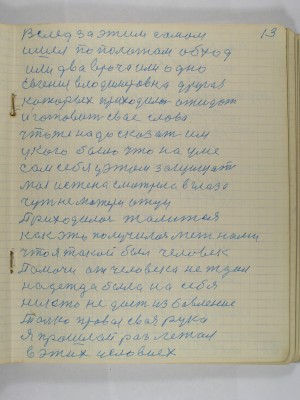 13
Вслед за этим самом
ишел по полотам обход
или два врача или одно
Евгения владимировна другая
которых приходило ожидат
и готоват свае слова
что ж надо сказат им
у кого было что на уме
сам себя у этом защищат
моя истена сматрила в глаза
чут не матери отцу
Приходилоя
как эта получилоя меж нами
что я такой был человек
Помочи от человека не ждал
надежда была на себя
никто не дает избовление
Толко провая своя рука
Я прошлой раз лежал
в этих условиех